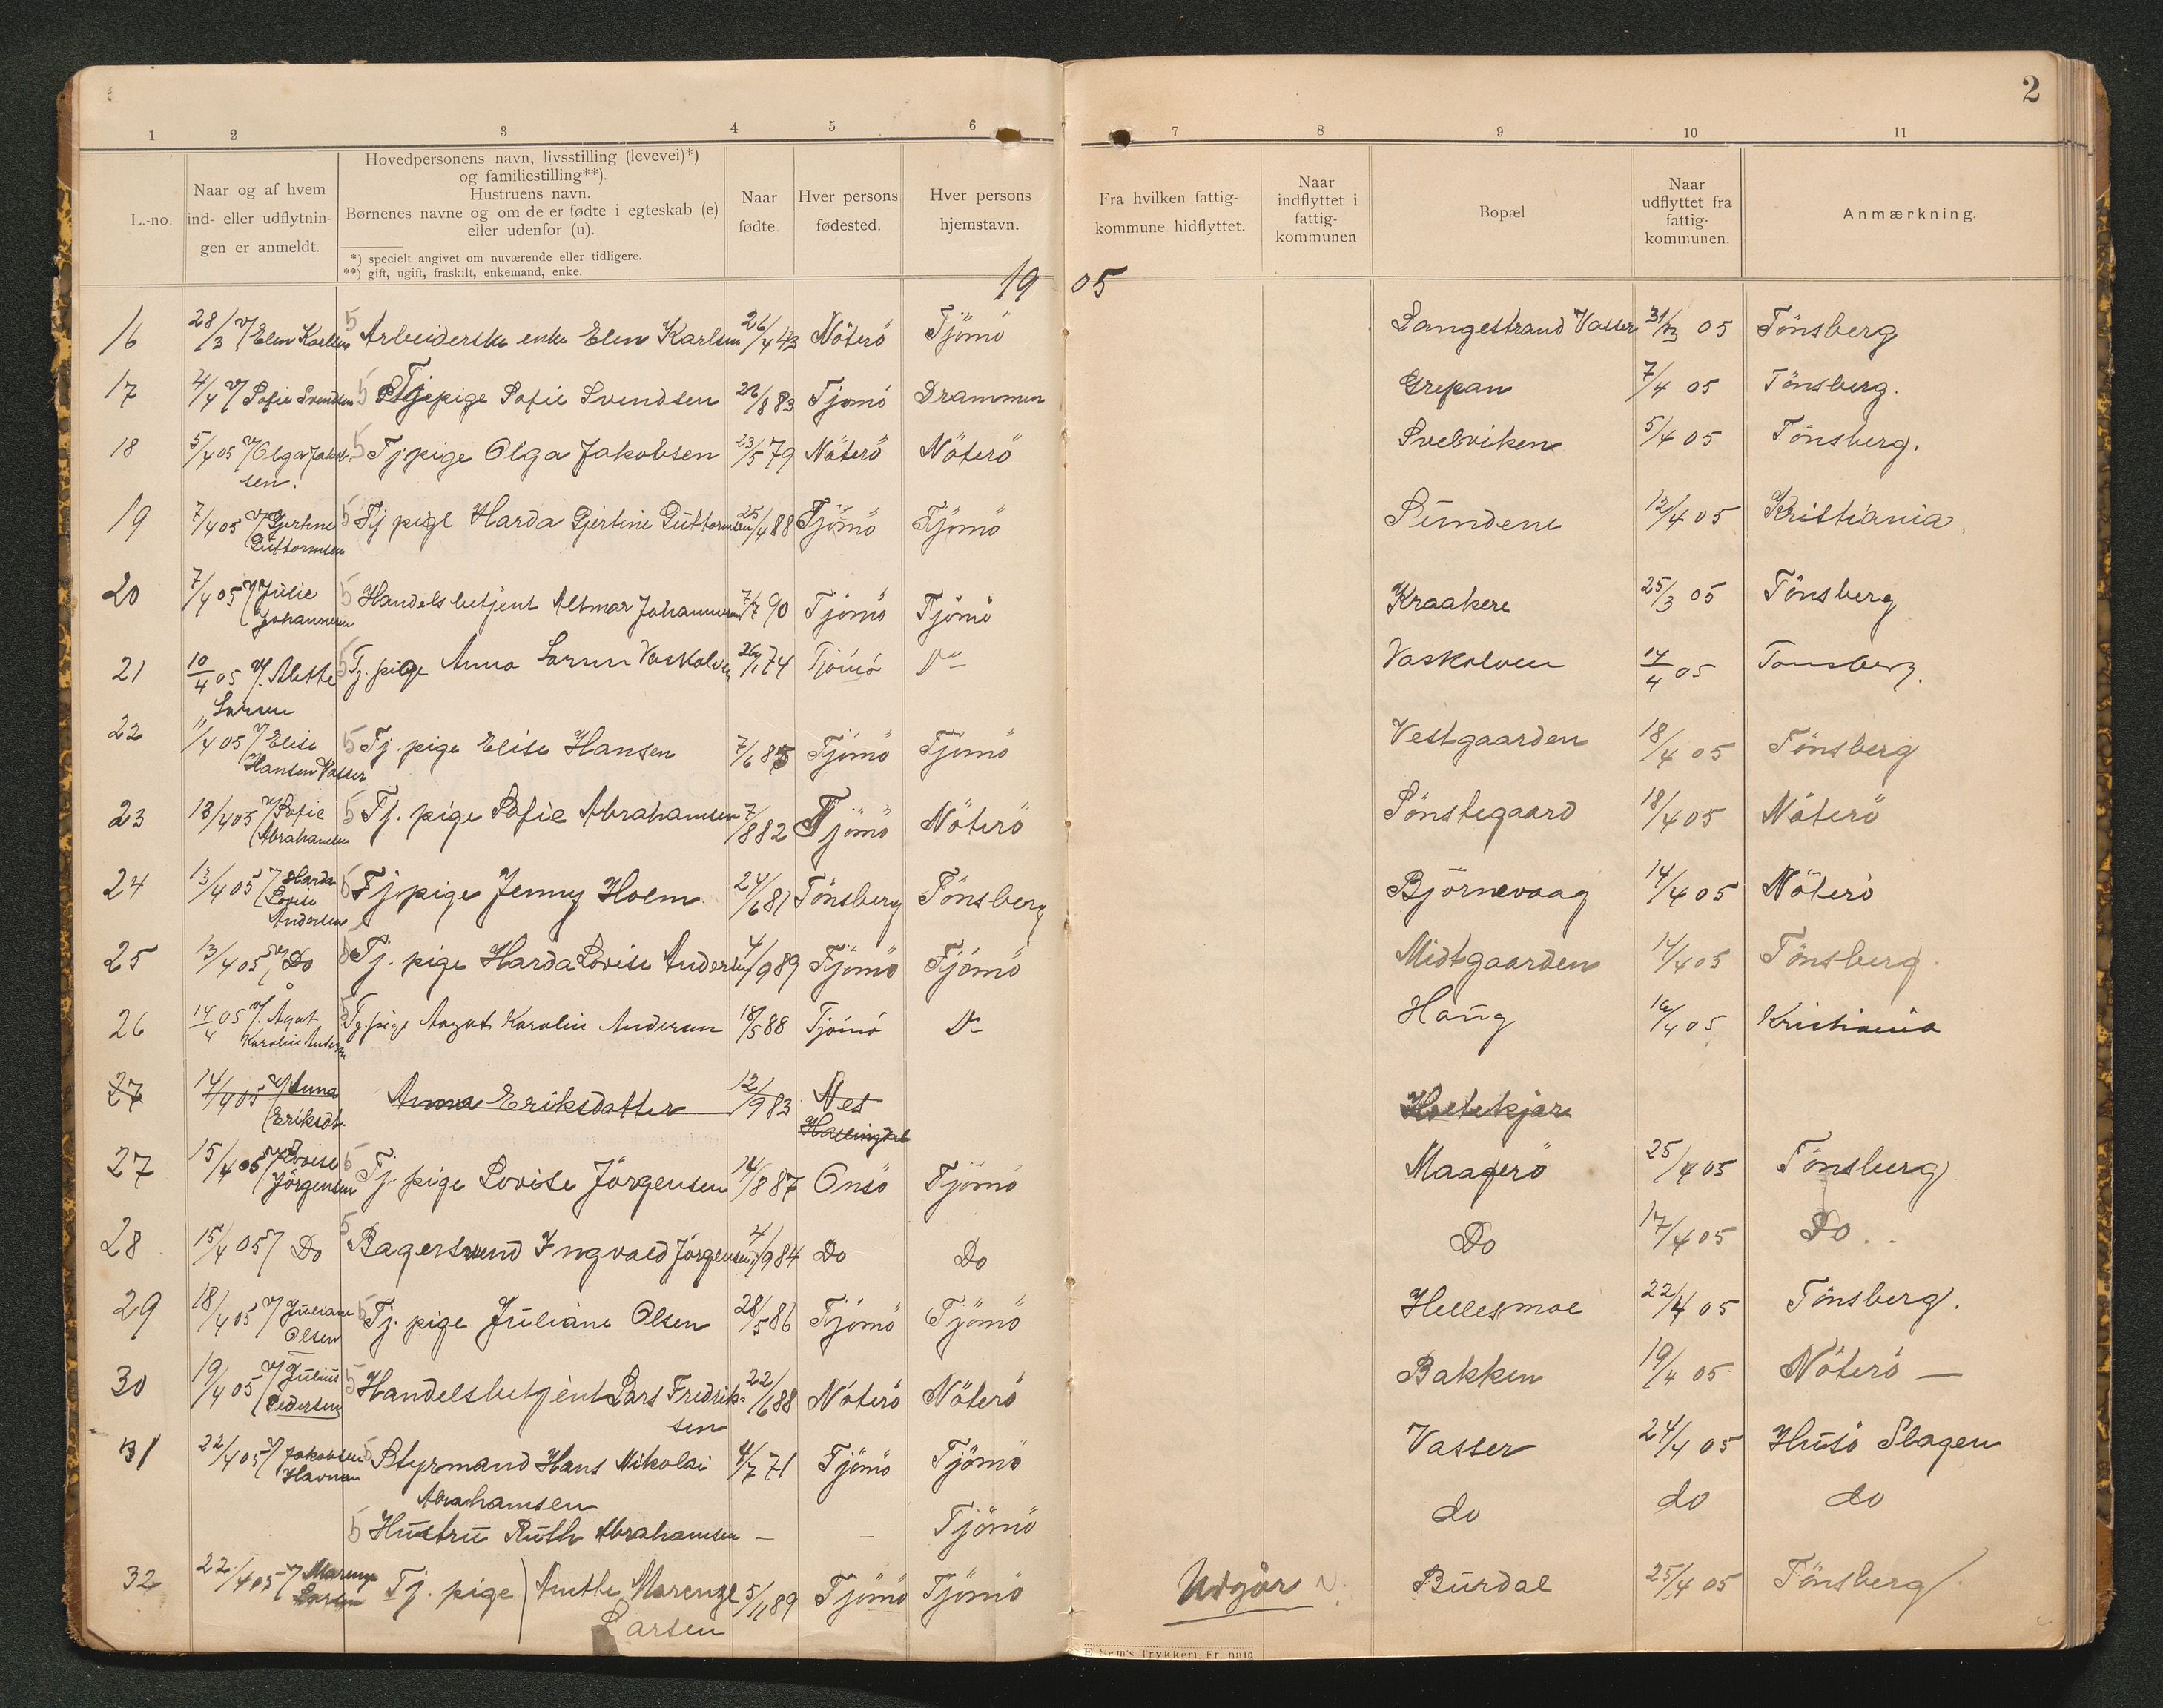 2
1 2 3 4 5 6 7 8 9 10 11
L.-no.
Naar og af hvem
ind- eller udflytnin-
gen er anmeldt.
Hovedpersonens navn, livsstilling (levevei)*)
og familiestilling**).
Hustruens navn.
Børnenes navne og om de er fødte i egteskab (e)
eller udenfor (u).
*) specielt angivet om nuværende eller tidligere.
**) gift, ugift, fraskilt, enkemand, enke.
Naar
fødte.
Hver persons
fødested.
Hver persons
hjemstavn.
Fra hvilken fattig-
kommune hidflyttet.
Naar
indflyttet i
fattig-
kommunen
Bopæl
Naar
udflyttet fra
fattig-
kommunen.
Anmærkning.
19 05
16 28/3 v/ Elen Karlsen 5 Arbeiderske enke Elen Karlsen 26/4 43 Nöterö Tjömö Langestrand Vasser 31/3 05 Tönsberg
17 4/4 v/ Sofie Svendsen 5 Tjpige Sofie Svendsen 26/8 83 Tjömö Drammen Grepan 7/4 05 Tönsberg.
18 5/4 05 v/ Olga Jakob- 5 Tj.pige Olga Jakobsen 23/5 79 Nöterö Nöterö Svelviken 5/4 05 Tönsberg.
sen.
19 7/4 05 v/ Gjertine 5 Tj pige Harda Gjertine Guttormsen 25/4 88 Tjömö Tjömö Sundene 12/4 05 Kristiania.
Guttormsen
20 7/4 05 v/ Julie 5 Handelsbetjent Altmar Johannesen 7/7 90 Tjömö Tjömö Kraakere 25/3 05 Tönsberg
Johannesen
21 10/4 05 v/. Alette 5 Tj. pige Anna Larsen Vaskalven 26/1 74 Tjömö Do Vaskalven 14/4 05 Tonsberg.
Larsen
22 11/4 05 v/ Elise 5 Tj. pige Elise Hansen 7/6 85 Tjömö Tjömö Vestgaarden 18/4 05 Tönsberg
Hansen Vasser
23 13/4 05 v/ Sofie 5 Tj. pige Sofie Abrahamsen 7/8 82 Tjömö Nöterö Sönstegaard 18/4 05 Nöterö
Abrahamsen
24 13/4 05 v/ Harda 5 Tj.pige Jenny Holm 24/6 81 Tönsberg Tönsberg Björnevaag 14/4 05 Nöterö
Lovise
Andersen
25 13/4 05 v/ Do Tj. pige Harda Lovise Andersen 4/9 89 Tjömö Tjömö Midtgaarden 14/4 05 Tönsberg.
26 14/4 05 v/. Agat 5 Tj.pige Aagot Karolin Andersen 18/5 88 Tjömö Do Haug 16/4 05 Kristiania
Karolin Andersen
27 14/4 05 v/ Anna Anna Eriksdatter 12/9 83 Nes
Eriksdt. Hallingdal
27 15/4 05 v/ Lovise 5 Tj. pige Lovise Jörgensen 14/8 87 Onsö Tjömö Maagerö 25/4 05 Tönsberg
Jörgensen
28 15/4 05 v/ Do 5 Bagersvend Ingvald Jörgensen 4/9 84 Do Do Do 17/4 05 Do..
29 18/4 05 v/ Juliane 5 Tj. pige Juliane Olsen 28/5 86 Tjömö Tjömö Hellesmoe 22/4 05 Tönsberg.
Olsen
30 19/4 05 v/ Julius 5 Handelsbetjent Lars Fredrik- 22/6 88 Nöterö Nöterö Bakken 19/4 05 Nöterö —
Pedersen sen
31 22/4 05 v/ Jakobsen 5 Styrmand Hans Nikolai 4/7 71 Tjömö Tjömö Vasser 24/4 05 Husö Slagen
Havnen Abrahamsen
5 Hustru Ruth Abrahamsen — — Tjömö do do do
32 22/4 05 v/ Marenze Tj. pige Anette Marenze 5/11 89 Tjömö Tjömö Udgår Burdal 25/4 05 Tönsberg
Larsen Larsen
E. Sem's Trykkeri, Fr.hald.